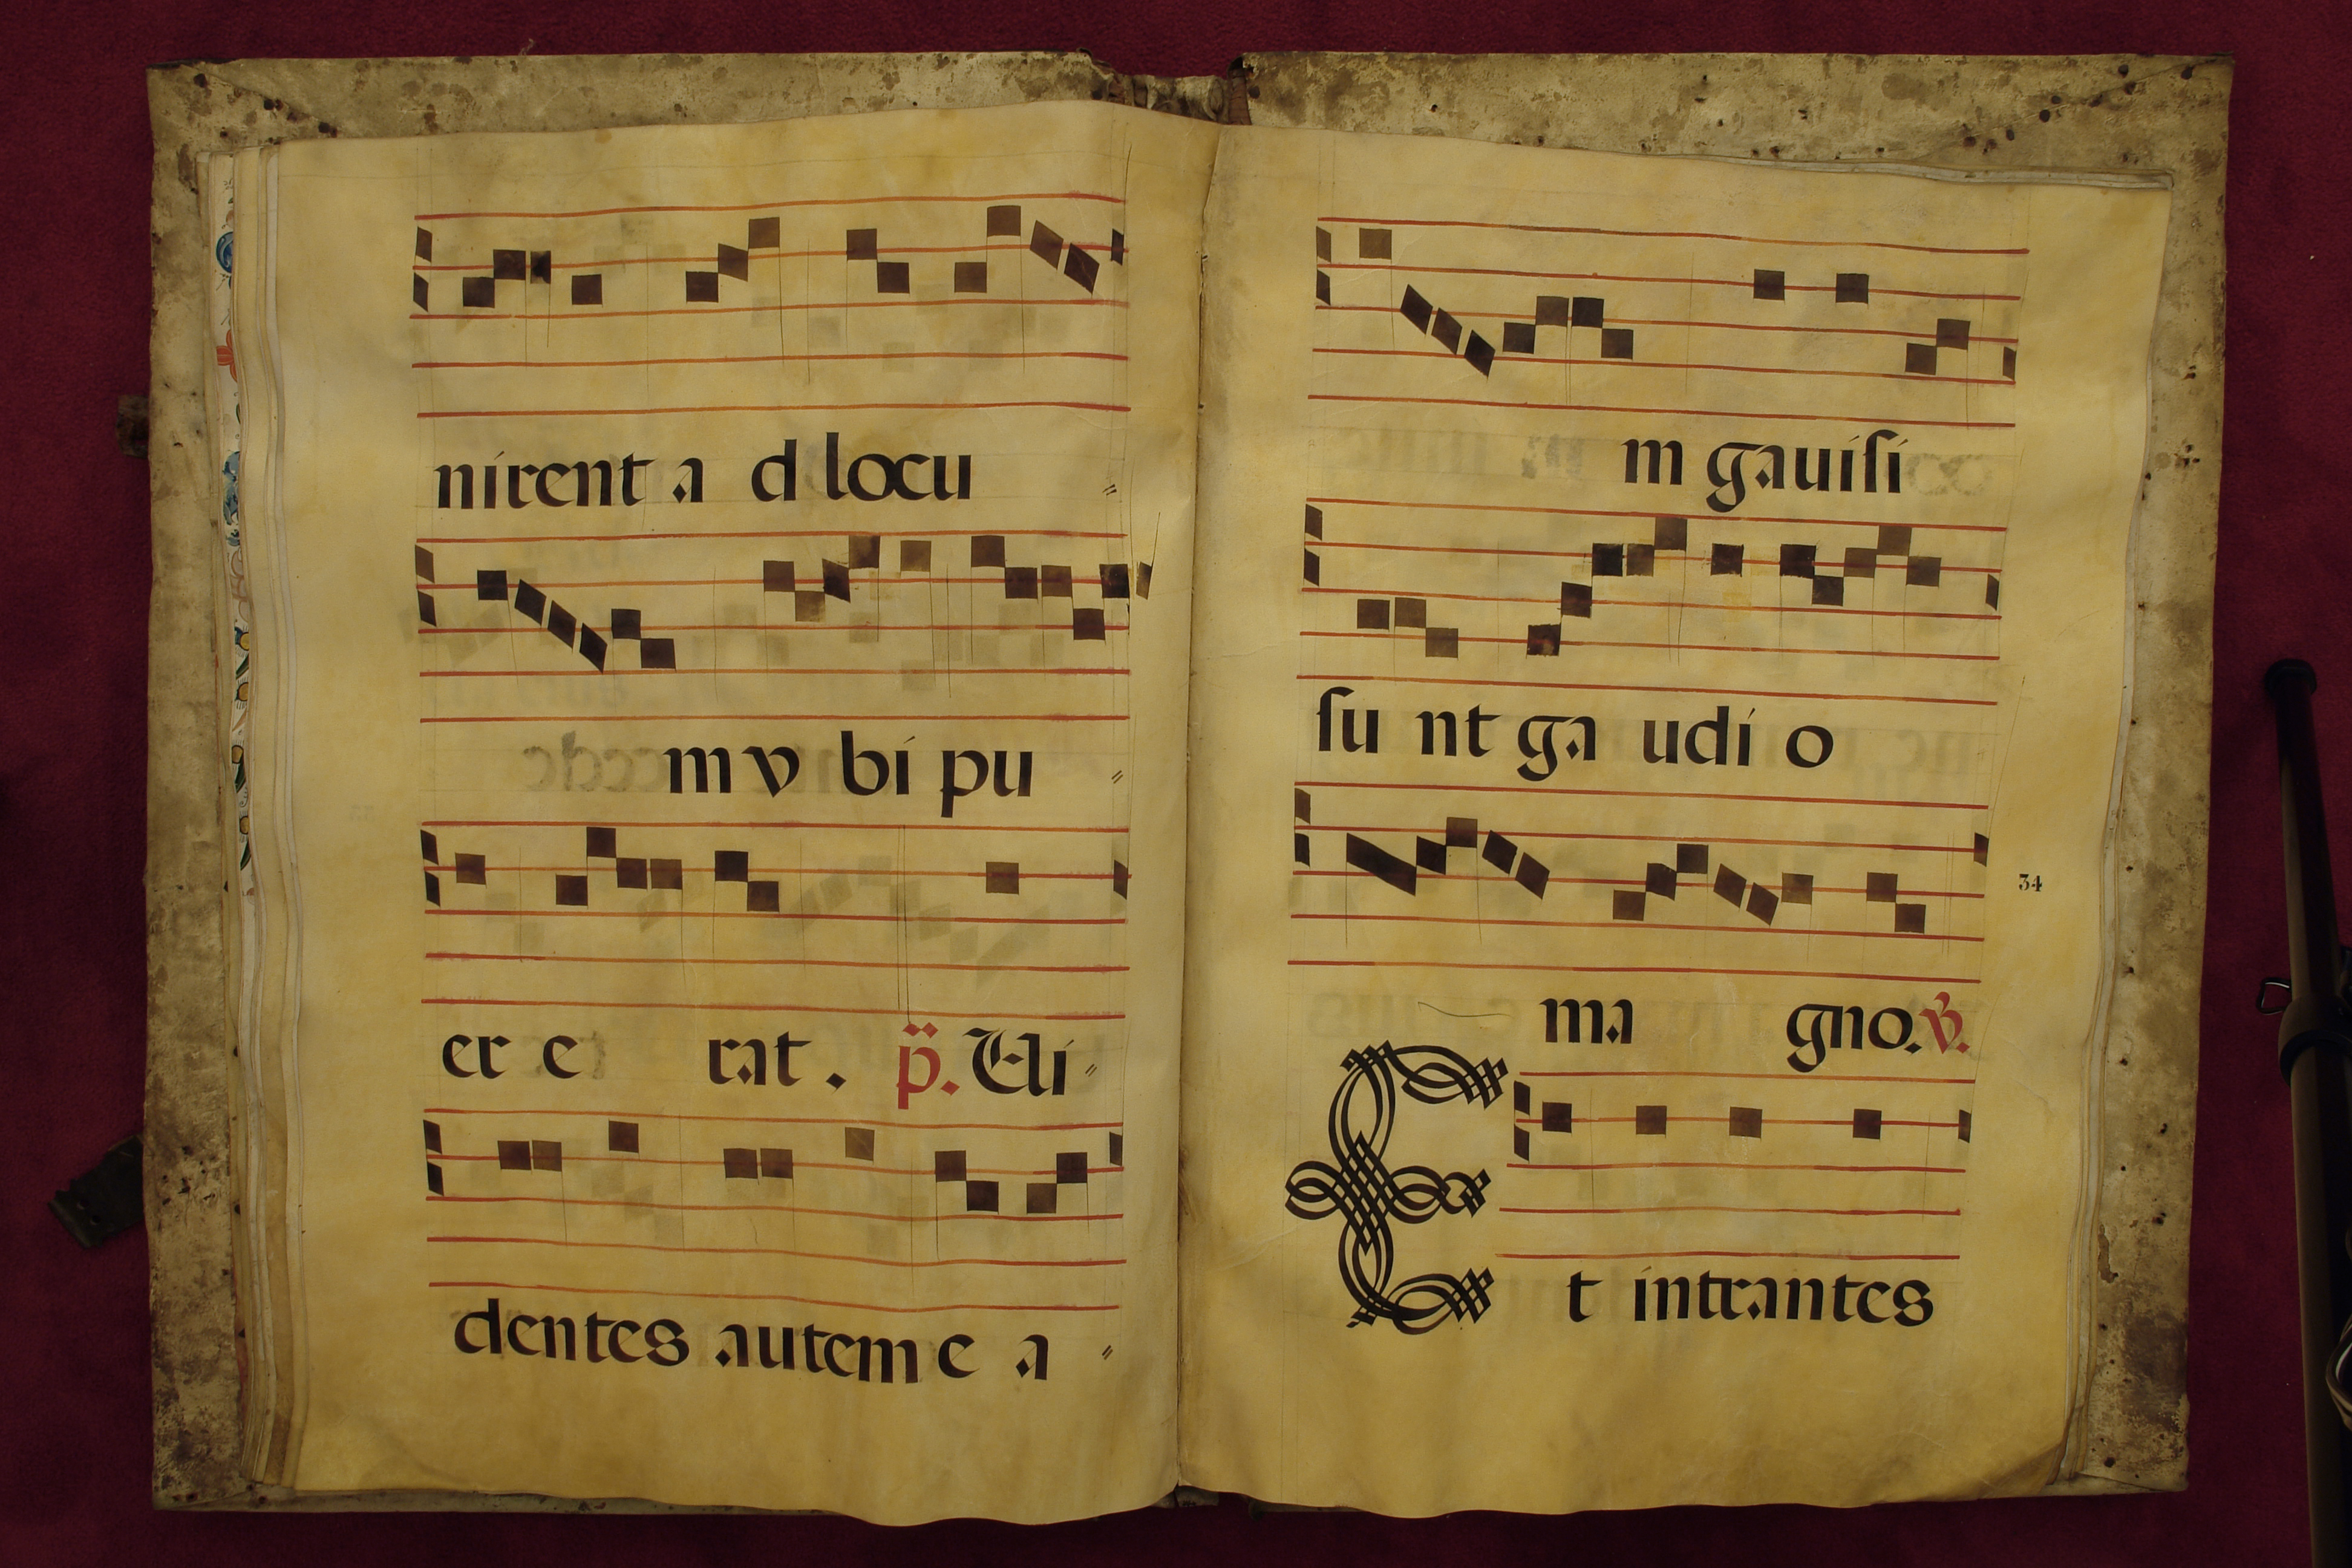 nirent a d locu
m v bi pu
er e rat. p̈. Ui
dentes autem e a
m gauiſi
ſu nt ga udi o
34
ma gno. v.
E t intrantes